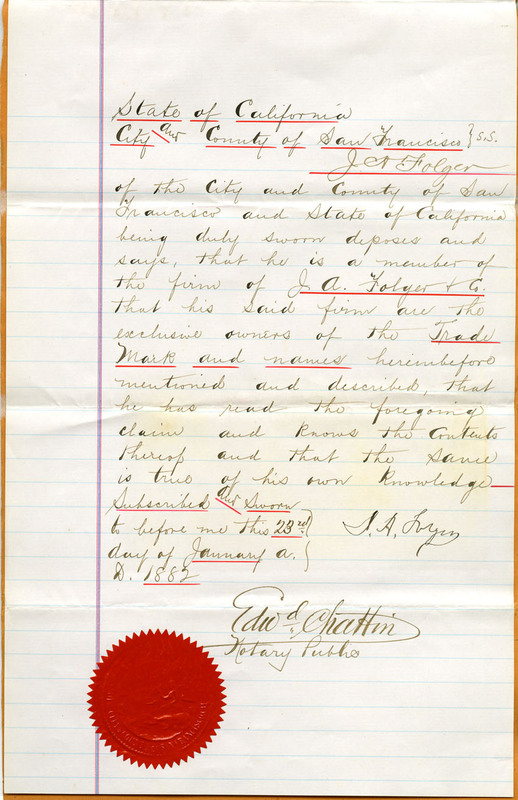 State of California
City and County of San Francisco } S.S.
J. A. Folger
of the City and County of San
Francisco and State of California
being duly sworn deposes and
says, that he is a member of
the firm of J. A. Folger & Co.
that his said firm are the
exclusive owners of the Trade
Mark and names hereinbefore
mentioned and described, that
he has read the foregoing
claim and knows the Contents
thereof and that the same
is true of his own Knowledge
Subscribed and Sworn
to before me this 23rd
day of January a.
D. 1882
J. A. Folger
Edwd Chattin
Notary Public